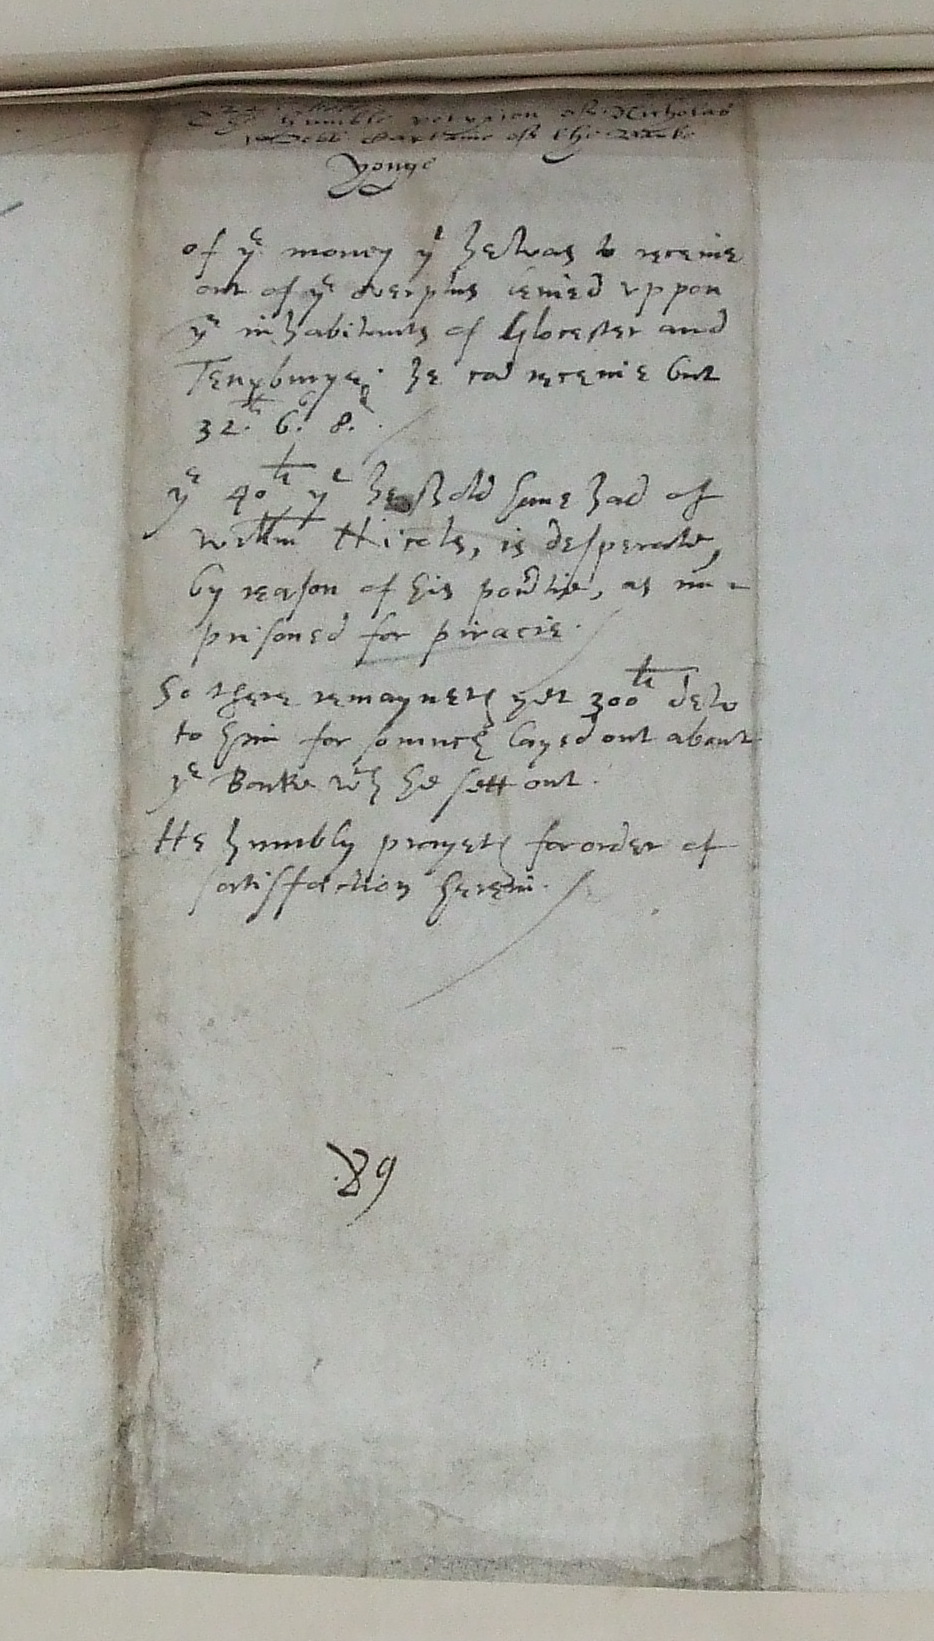 The humble peticion of Nicholas
Webb Captaine of the Barke
yonge
of yᵉ money yᵗ he was to receiue
out of yᵉ overplus leuied vppon
yᵉ inhabitants of Glocester and
Teuxburye. he cā receiue but
32.ˡⁱ 6.ˢ 8.ᵈ
yᵉ 40ˡⁱ yᵗ he shold haue had of
Willm Hicols, is desperate,
by reason of his pou'tie, as im-
prisoned for piracie.
So there remayneth yett 300ˡⁱ dew
to him for somuch layed out about
yᵉ Barke wᶜʰ he sett out.
He humbly prayeth for order of
satisfaction herein.
89